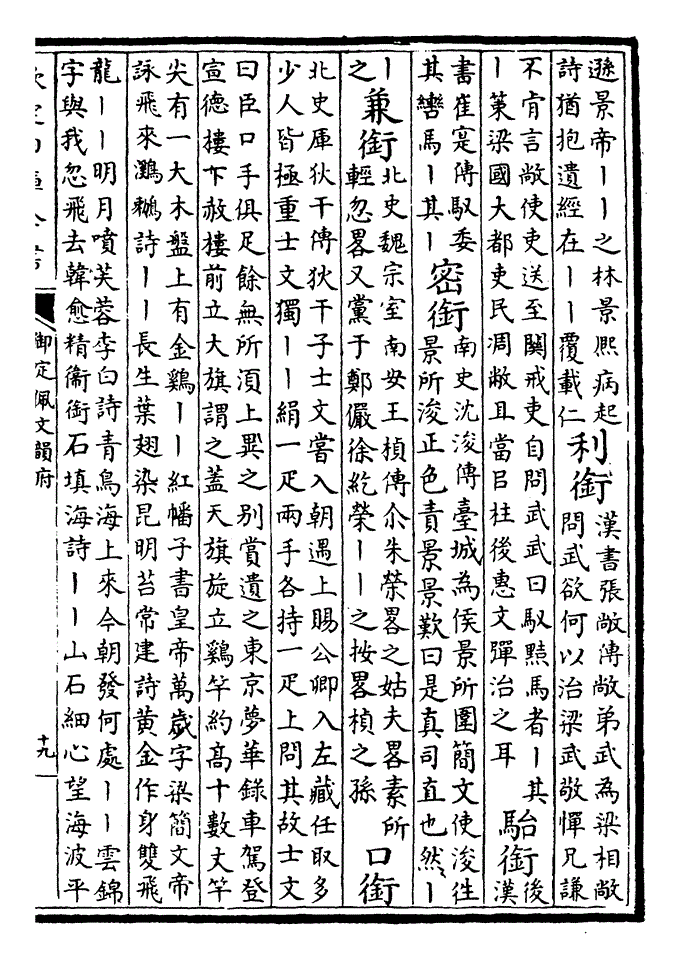 遜景帝丨丨之林景熈病起
詩猶抱遺經在丨丨覆載仁
利銜
漢書張敞傳敞弟武為梁相敞
問武欲何以治梁武敬憚兄謙
不肯言敞使吏送至關戒吏自問武武曰馭黠馬者丨其
丨策梁國大都吏民凋敝且當㠯柱後惠文彈治之耳
駘銜
後
漢
書崔寔傳馭委
其轡馬丨其丨
密銜
南史沈浚傳臺城為侯景所圍簡文使浚往
景所浚正色責景景歎曰是真司直也然丨
丨
之
兼銜
北史魏宗室南安王楨傳尒朱榮畧之姑夫畧素所
輕忽畧又黨于鄭儼徐紇榮丨丨之按畧楨之孫
口銜
北史厙狄干傳狄干子士文嘗入朝遇上賜公卿入左藏任取多
少人皆極重士文獨丨丨絹一疋兩手各持一疋上問其故士文
曰臣口手俱足餘無所湏上異之别賞遺之東京夢華錄車駕登
宣德樓下赦樓前立大旗謂之蓋天旗旋立鷄竿約髙十數丈竿
尖有一大木盤上有金鷄丨丨紅幡子書皇帝萬歲字梁簡文帝
詠飛來鸂鶒詩丨丨長生葉翅染昆明苔常建詩黃金作身雙飛
龍丨丨明月噴芙蓉李白詩青鳥海上來今朝發何處丨丨雲錦
字與我忽飛去韓愈精衞銜石填海詩丨丨山石細心望海波平
御定佩文韻府
十九